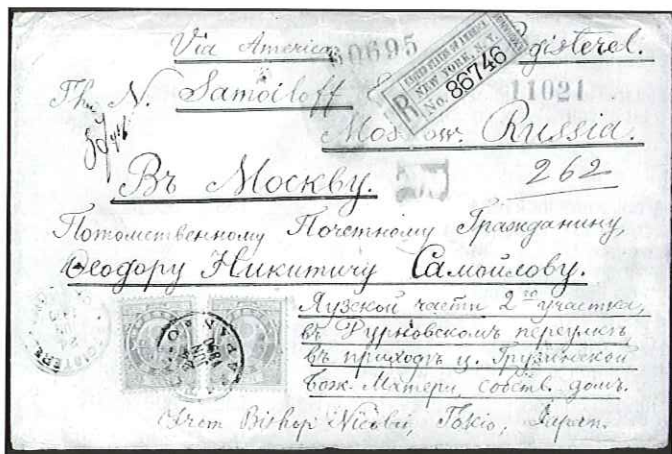 Via America 60695 Registered.
UNITED STATES OF AMERICA
NEW YORK, N.Y.
R No. 86746
Th. N. Samoiloff 11021
Moscow. Russia.
Въ Москву. 262
Потомственному Почетному Гражданину,
Ѳеодору Никитичу Самойлову.
Яузской части 2го участка,
въ переулкѣ,
въ приходѣ ц. Грузинской
Бож. Матери, собств. домъ.
JAPAN
From Bishop Nicolai, Tokio, Japan.